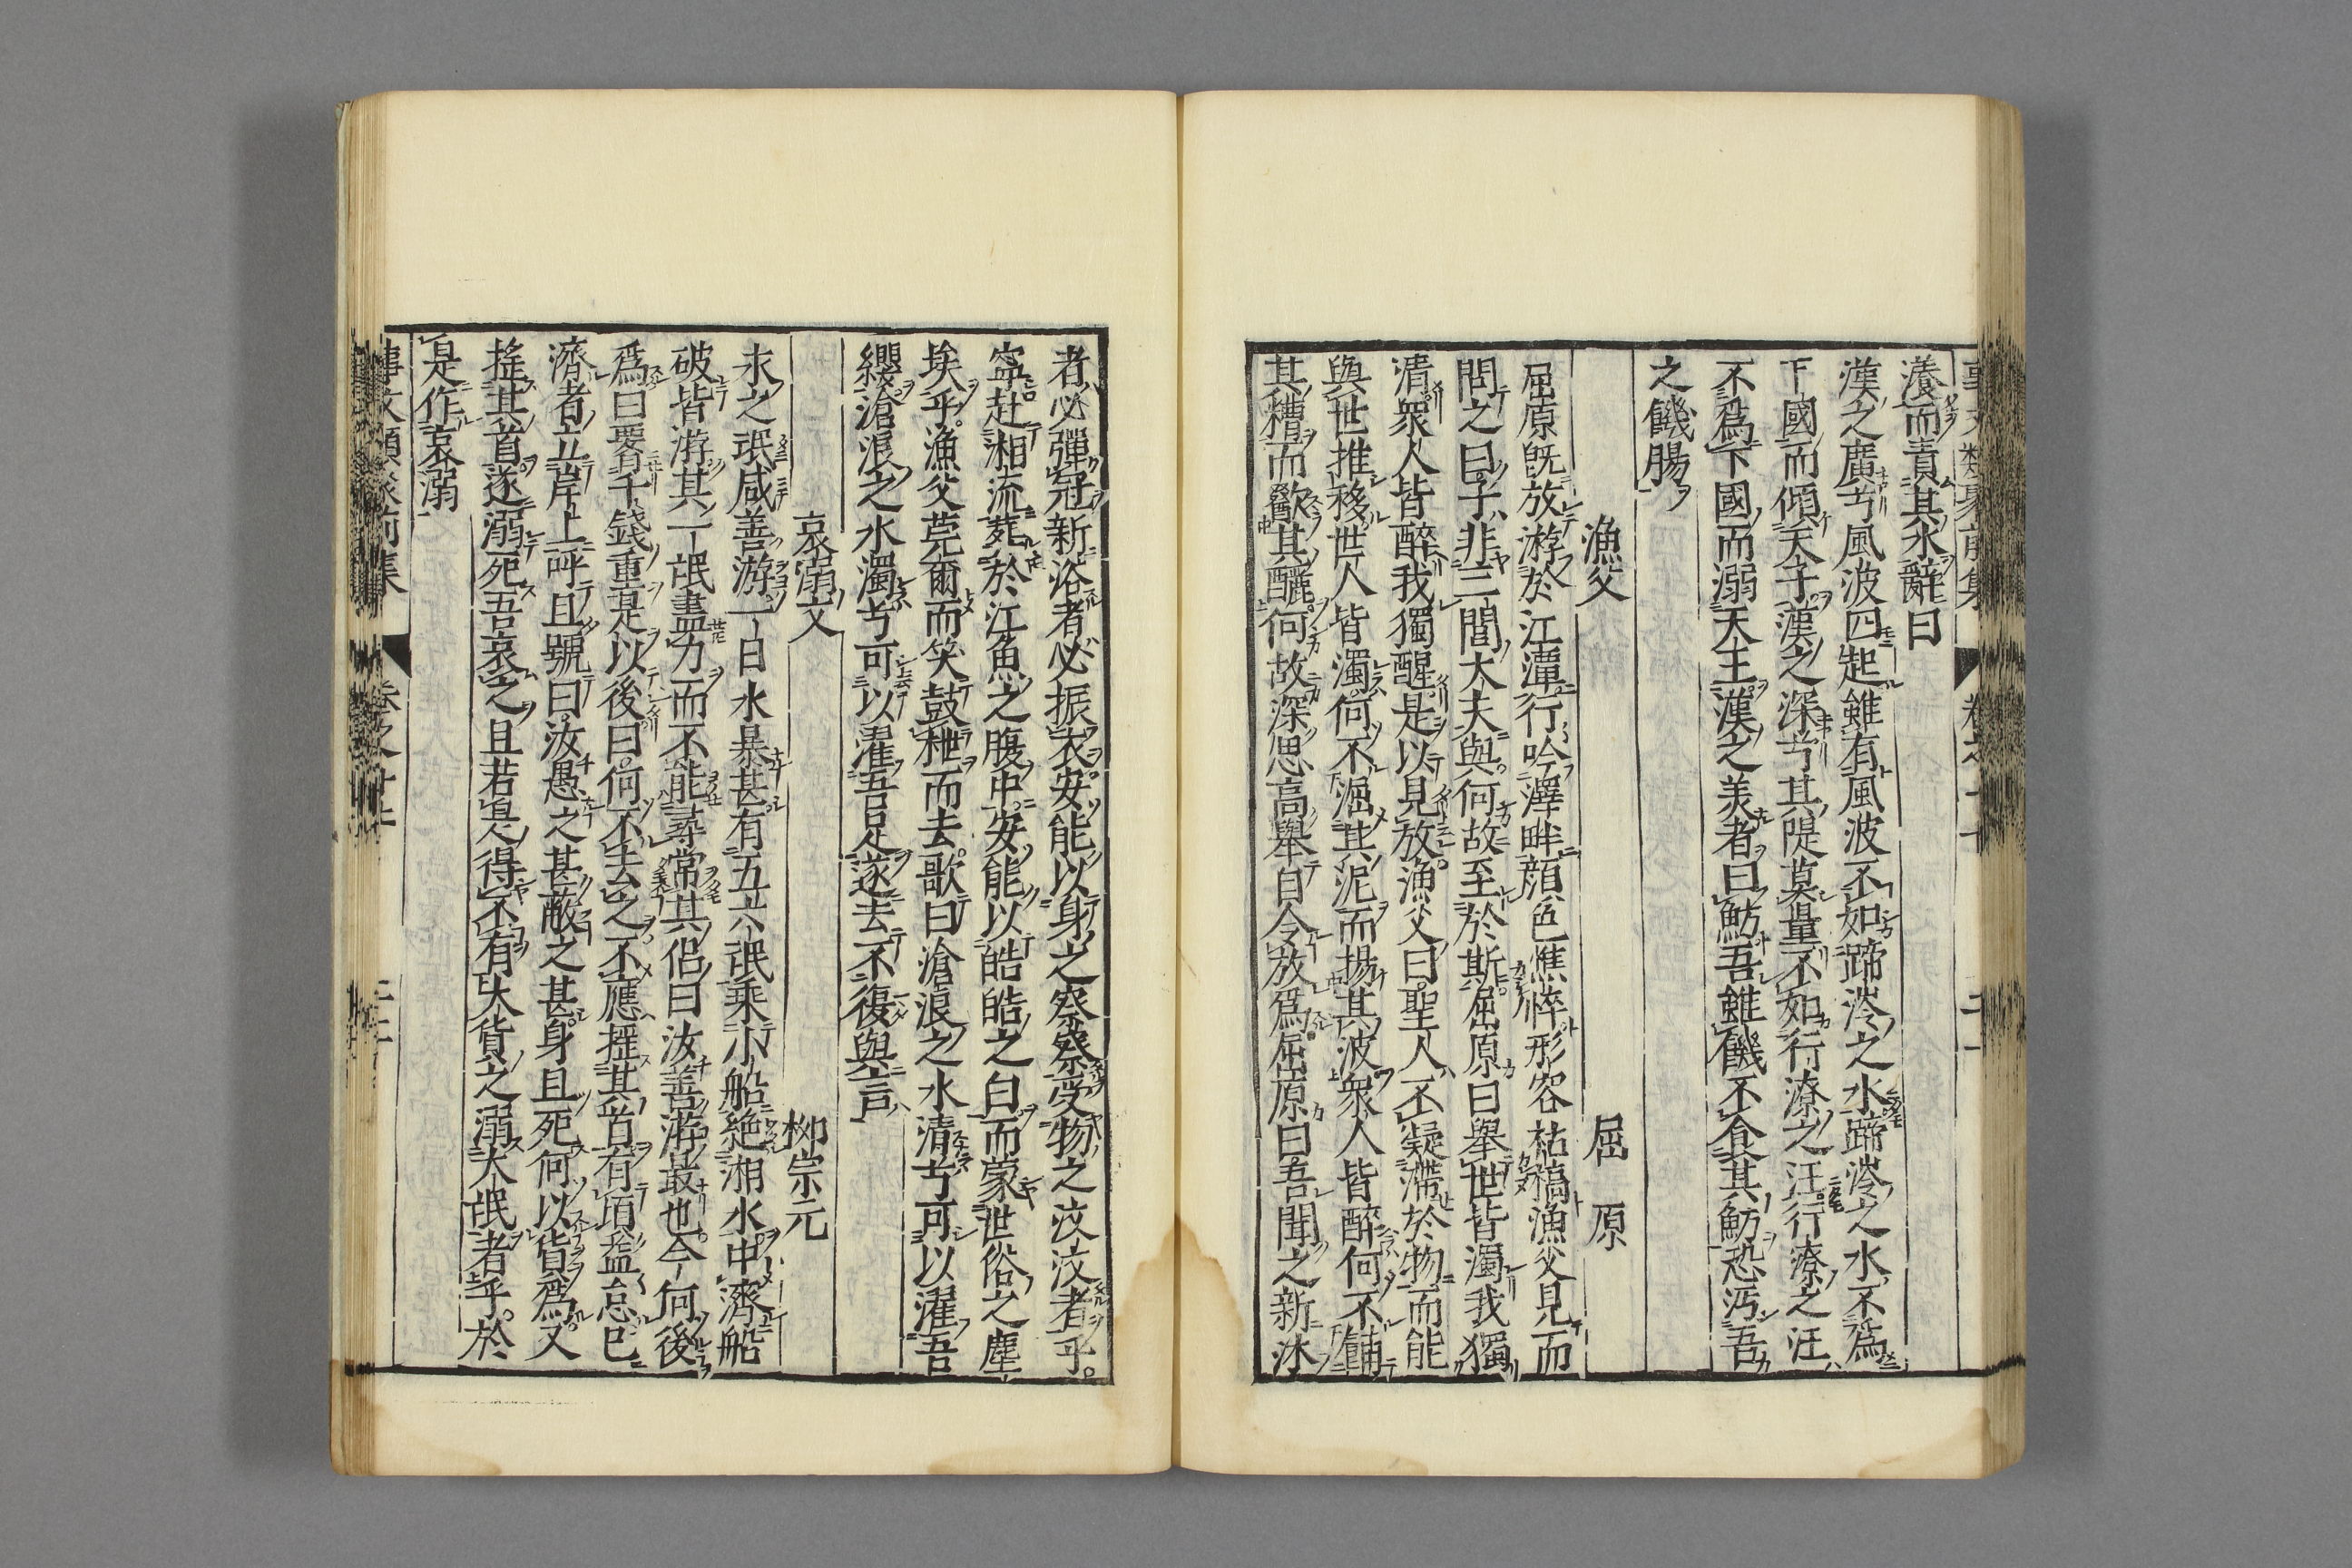 濆而責其水辭曰
漢之廣兮風波四起雖有風波不如蹄涔之水蹄涔之水不爲
下國而傾天子漢之深兮其隄莫量不如行潦之汪行潦之汪
不爲下國而溺天王漢之美者曰魴吾雖饑不食其魴恐汚吾
之饑腸
漁父 屈原
屈原既放游於江潭行吟澤畔顔色憔悴形容枯槁漁父見而
問之曰子非三閭大夫與何故至於斯屈原曰舉世皆濁我獨
清衆人皆醉我獨醒是以見放漁父曰聖人不凝滯於物而能
與世推移世人皆濁何不淈其泥而揚其波衆人皆醉何不餔
其糟而歠其醨何故深思高舉自令放爲屈原曰吾聞之新沐
者必彈冠新浴者必振衣安能以身之察察受物之汶汶者乎
寧赴湘流葬於江魚之腹中安能以皓皓之白而蒙世俗之塵
埃乎漁父莞爾而笑鼓枻而去歌曰滄浪之水清兮可以濯吾
纓滄浪之水濁兮可以濯吾足遂去不復與言
哀溺文 柳宗元
永之氓咸善游一日水暴甚有五六氓乘小船絶湘水中濟船
破皆游其一氓盡力而不能尋常其侣曰汝善游最也今何後
爲曰吾腰千錢重是以後曰何不去之不應搖其首有頃益怠已
濟者立岸上呼且號曰汝愚之甚蔽之甚身且死何以貨爲又
搖其首遂溺死吾哀之且若是得不有大貨之溺大氓者乎於
是作哀溺
事文類聚前集 卷之十七